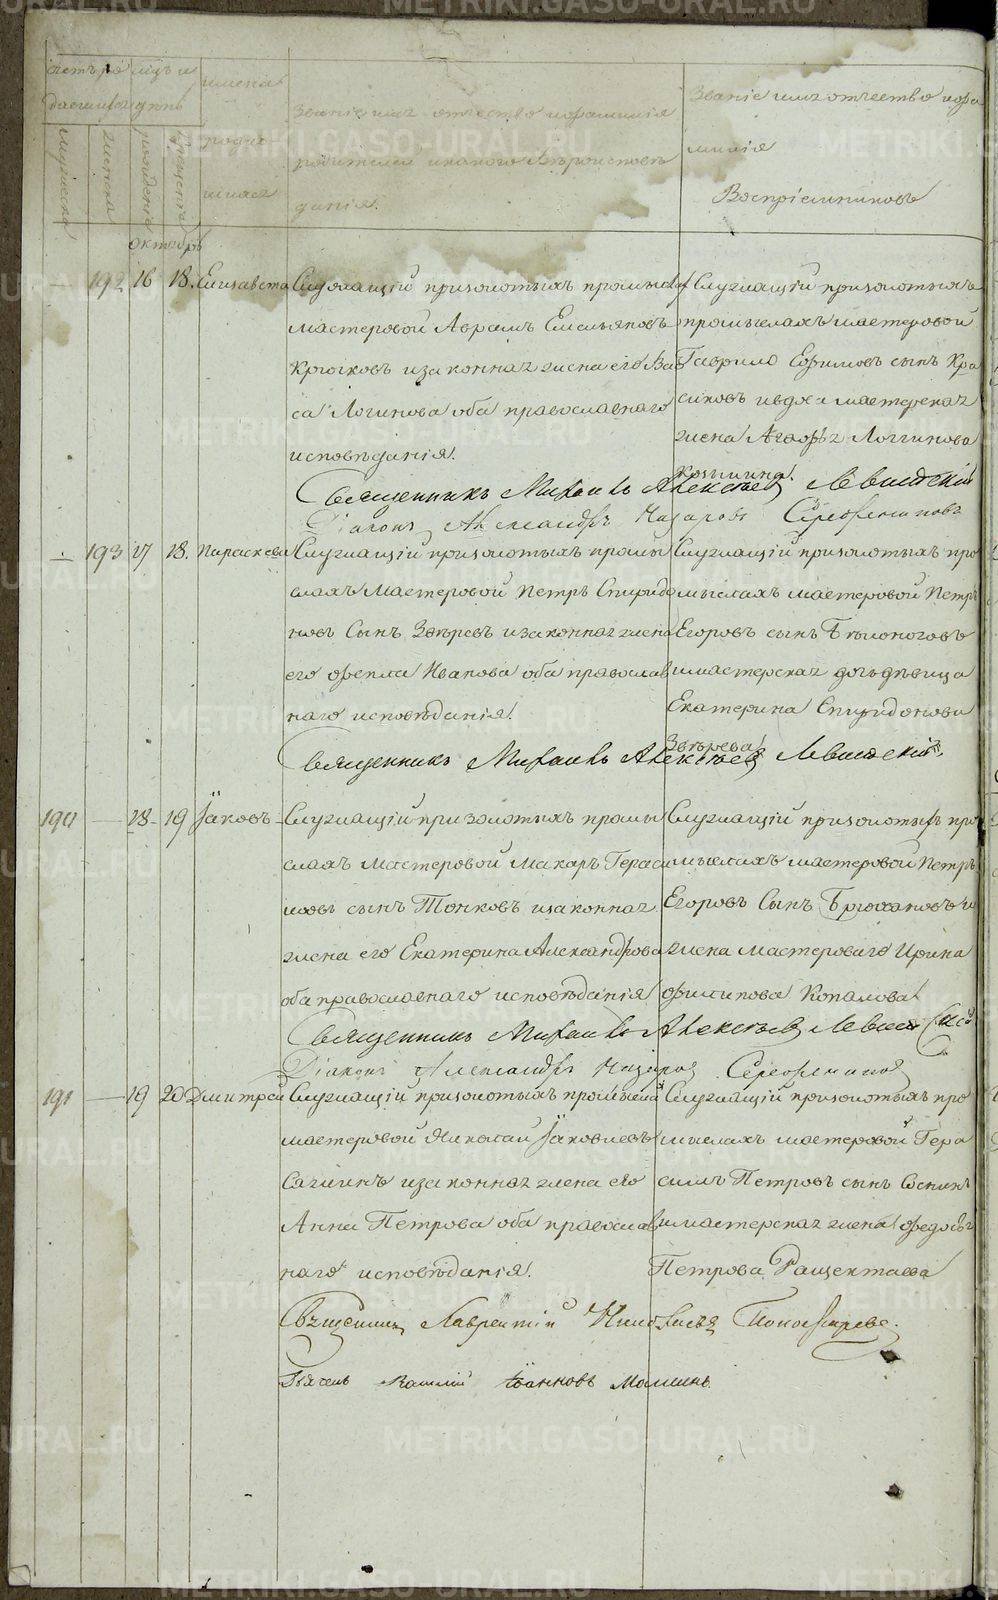 METRIKI.GASO-URAL.RU
Званіе имя отчество и фамилія
родителей и какого вѣроисповѣ
данія.
Званіе имя отчество и фа
милія
Воспріемниковъ
мужеска
женска
рожденія
крещенія
имена
октябрь
192 16 18. Елисавета
Служащій при золотыхъ промысл
мастеровой Аврамъ Емельяновъ
Крюковъ и законная жена его Ва
са Логинова оба православнаго
исповѣданія.
Служащій при золотыхъ
промыслахъ мастеровой
Гаврило Ефимовъ сынъ Кра
сиковъ и вдов мастерская
жена Агафья Логгинова
Священникъ Михаилъ Алексѣевъ Левитскій
Діаконъ Александръ Назаровъ Серебренниковъ
193 17 18. Параскева
Служащій при золотыхъ промы
слахъ мастеровой Петръ Спиридо
новъ Сынъ Звѣревъ и законная жена
его Фекла Иванова оба православ
наго исповѣданія.
Служащій при золотыхъ про
мыслахъ мастеровой Петръ
Егоровъ сынъ Бѣлоноговъ
и мастерская дочь дѣвица
Екатерина Спиридонова
Звѣрева
Священникъ Михаилъ Алексѣевъ Левитскій
190 18 19 Іаковъ
Служащій при золотыхъ промы
слахъ мастеровой Макаръ Гераси
мовъ сынъ Тонковъ и законная
жена его Екатерина Александрова
оба православнаго исповѣданія
Служащій при золотыхъ про
мыслахъ мастеровой Петръ
Егоровъ Сынъ Брюхановъ и
жена мастероваго Ирина
Филипова Копалова
Священникъ Михаилъ Алексѣевъ Левитскій
Діаконъ Александръ Назаровъ Серебренниковъ
191 19 20 Дмитрей
Служащій при золотыхъ промысла
мастеровой Николай Іаковлевъ
и законная жена его
Анна Петрова оба православ
наго исповѣданія.
Служащій при золотыхъ про
мыслахъ мастеровой Гера
симъ Петровъ сынъ
и мастерская жена Федосья
Петрова Ращектаева
Священникъ Лаврентій Николаевъ Пономаревъ.
Дьячекъ Василій Іоанновъ